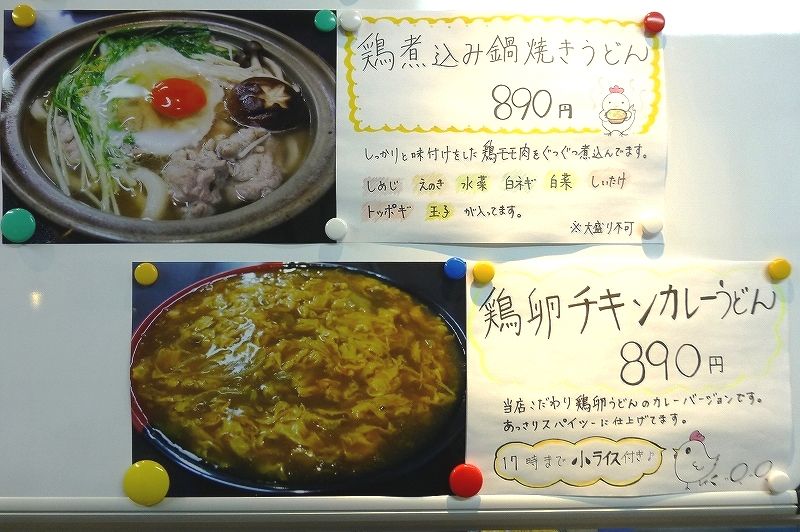 鶏煮込み鍋焼きうどん
890円
しっかりと味付けをした鶏モモ肉をぐつぐつ煮込んでます。
しめじ えのき 水菜 白ネギ 白菜 しいたけ
トッポギ 玉子 が入ってます。
※大盛り不可
鶏卵チキンカレーうどん
890円
当店こだわり鶏卵うどんのカレーバージョンです。
あっさりスパイシーに仕上げてます。
17時まで小ライス付き♪